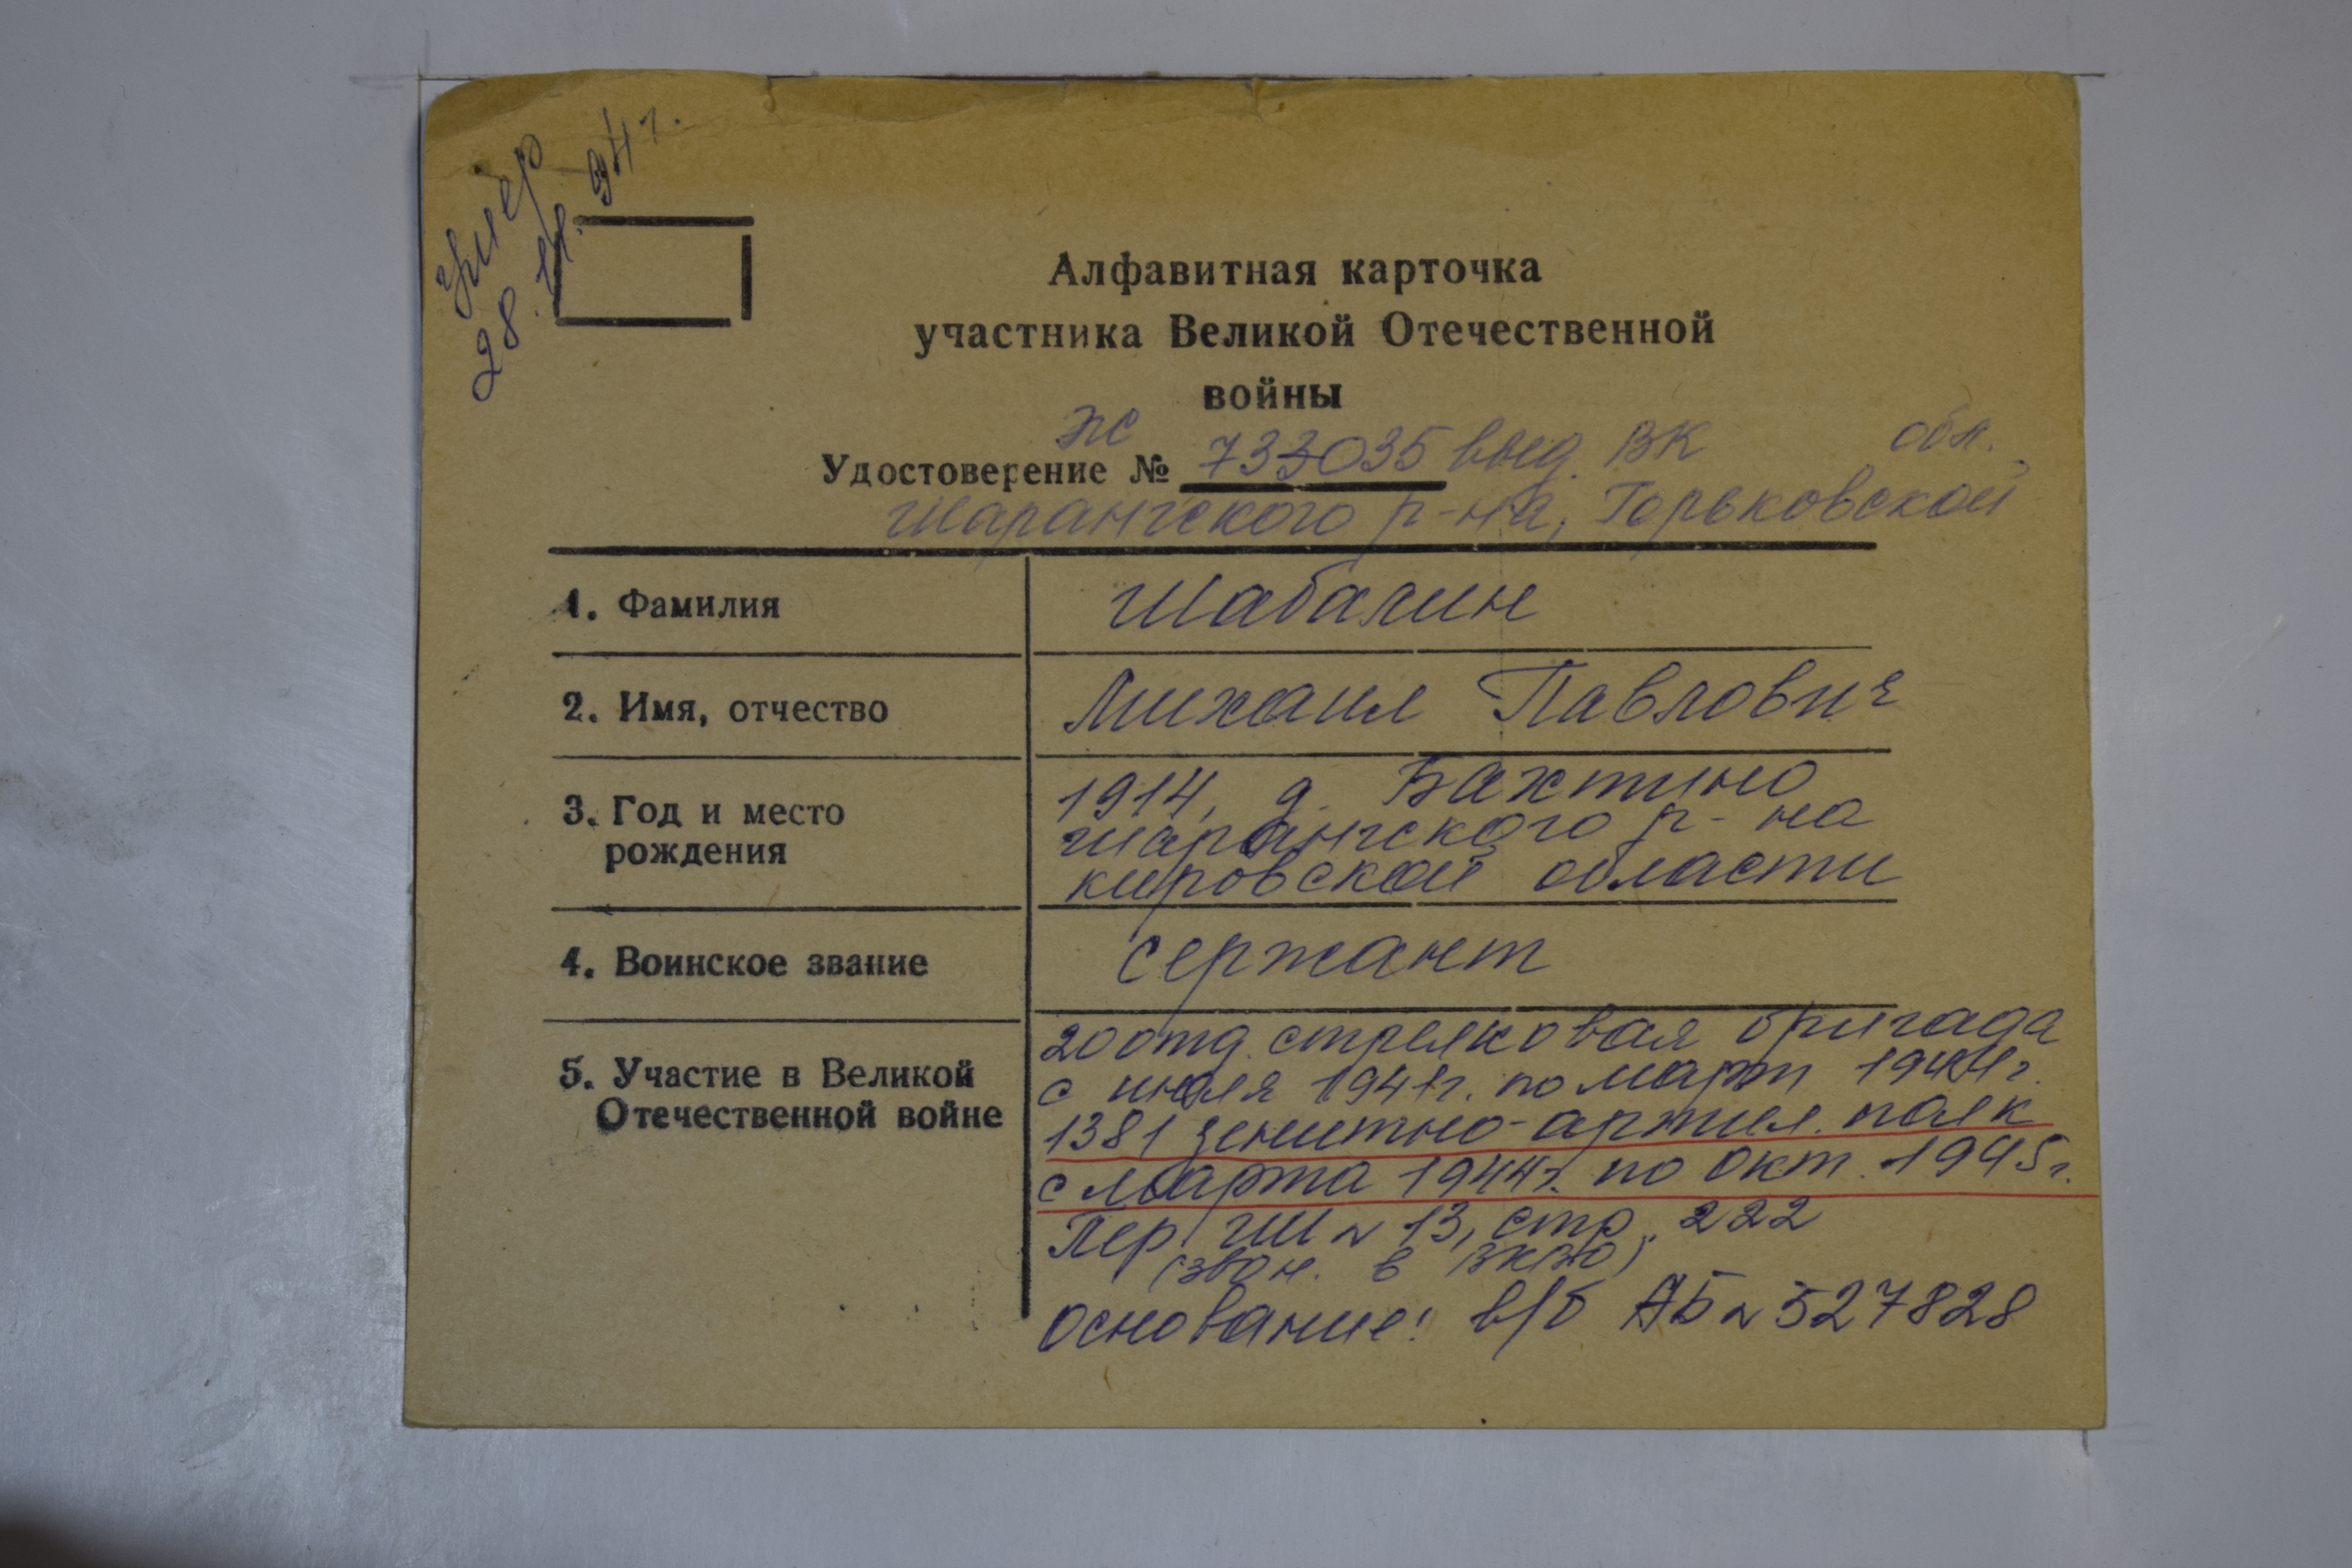 умер
28.11.94 г.
Алфавитная карточка
участника Великой Отечественной
войны
Удостоверение № 733035 выд. ВК обл.
Шарангского р-на, Горьковской
1. Фамилия Шабалин
2. Имя, отчество Михаил Павлович
3. Год и место рождения 1914, д. Бахтино
Шарангского р-на
Кировской области
4. Воинское звание сержант
5. Участие в Великой Отечественной войне
20 отд. стрелковая бригада
с июля 1941г. по март 1944г.
1381 зенитно-артил. полк
с марта 1944г. по окт. 1945г.
Пер. № 13, стр. 222
(звон. в )
Основание: в/б АБ № 527828